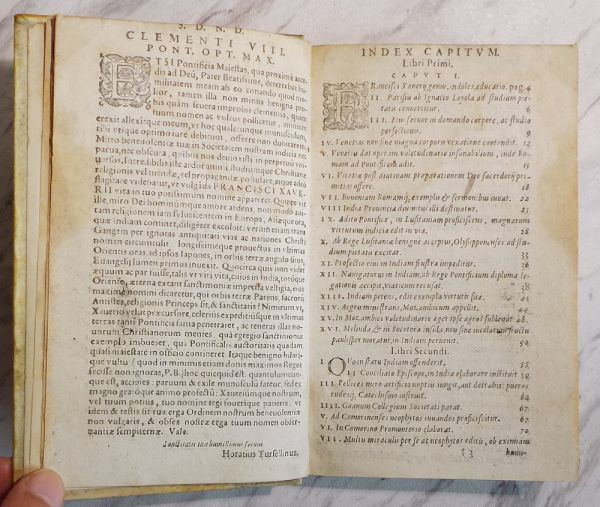 S. D. N. D.
CLEMENTI VIII.
PONT. OPT. MAX.
ETSI Pontificia Maiestas, qua proximè accedis ad Deũ, Pater Beatissime, deterrebat humilitatem meam ab eo conando quod
lior, tamen illa non minùs benigna pro
bis quàm seuera improbis clementia, quam
tuum nomen ac vultus pollicetur,
erexit allexitque meum, vt hoc qualecunque munusculum,
tibi vtique optimo iure debitum, offerre non dubitarem.
religionis vel tuendæ, vel propagandæ
flagitare videbatur, vt vulgẽda FRANCISCI XAVE-
RII vita in tuo potissimùm nomine appareret. Quippe vir
ille, miro Dei hominúmque amore ardens, non modo au-
ream religionem iam fulucentem in Europa, Asiæque ora,
quæ Indiam continet, diligẽter excoluit: verùm etiam trans
Gangem per ignotas antiquitati vias ac nationes Christi
nomen circumtulit: longissiméque prouectus in vltimas
Orientis oras, ad ipsos Iapones, in orbis terræ angulo sitos,
Euangelij lumen primus inuexit. Quocirca quis non videt
æquum ac par fuisse, talis vt viri vita, cuius in India, totóque
Oriente, æterna extant sanctimoniæ impressa vestigia, eius
maximè nomini dicaretur, qui orbis terræ Parens, sacrorũ
Antistes, religionis Princeps sit, & sanctitatis? Nimirum vt,
Xauerio velut præcursore celerius expeditiusque in vltimas
terras tanti Pontificis fama penetraret, ac teneras illas no-
uorum Christianorum mentes, quà egregio sanctimoniæ
exemplo imbueret, quà Pontificalis auctoritatis quadam
quasi maiestate in officio contineret. Itaque benignè hilari-
que vultu (quod in minimis etiam donis maximos Reges
fecisse non ignoras, P. B.) hoc quicquid est, quantulumcun-
que est, accipies: paruum & exile munusculũ fateor, sed ex
magno gratóque animo profectũ: Xauerium que nostrum,
vel tuum potius, tuo nomine tegi fouerique patieris: vt
idem & testis sit tuæ erga Ordinem nostrum beneuolentiæ
non vulgaris, & obses nostræ erga tuum nomen obser-
uantiæ sempiternæ. Vale.
Sanctitatis tuæ humillimus seruus
Horatius Tursellinus.
INDEX CAPITVM.
Libri Primi.
CAPVT I.
FRancisci Xauerij genus, indoles, educatio. pag. 4
II. Parisiis ab Ignatio Loyola ad studium pie-
tatis conuertitur. 6
III. Eius feruor in domando corpore, ac studio
perfectionis. 9
IV. Venetias non sine magna corporis vexatione contendit. 12
V. Venetiis dat operam valetudinario insanabilium, inde Ro-
mam ad Pontificem adit. 15
VI. Vicetiæ post diutinam præparationem Deo sacerdotij pri-
mitias offert. 18
VII. Bononiam Romamq; exemplis & sermonibus iuuat. 22
VIII. India Prouincia diuinitus illi destinatur. 25
IX. Adito Pontifice, in Lusitaniam proficiscens, magnarum
virtutum indicia edit in via. 28
X. Ab Rege Lusitaniæ benignè acceptus, Olysippone, ad stu-
dium pietatis excitat. 33
XI. Profectio eius in Indiam frustrà impeditur. 36
XII. Nauigaturus in Indiam, ab Rege Pontificium diploma le-
gationis accipit, viaticum recusat. 38
XIII. Indiam petens, edit exempla virtutis suæ. 42
XIV. Aegris ministrans, Mozambicum appellit. 44
XV. In Mozambici valetudinario æger ipse ægros subleuat. 46
XVI. Melindæ, & in Socotera insula, non sine incolarum fructu
paulisper moratus, in Indiam peruenit. 50
Libri Secundi.
I. QVo in statu Indiam offenderit. 55
II. Conciliato Episcopo, in India elaborare instituit. 59
III. Pellices miro artificio nuptiis iungit, aut detrahit: pueros
rudesq; Catechismo instruit. 62
IIII. Goanum Collegium Societati patat. 67
V. Ad Comorinenses neophytos iuuandos proficiscitur. 67
VI. In Comorino Promontorio elaborat. 70
VII. Multis miraculis per se ac neophytos editis, ob eximiam